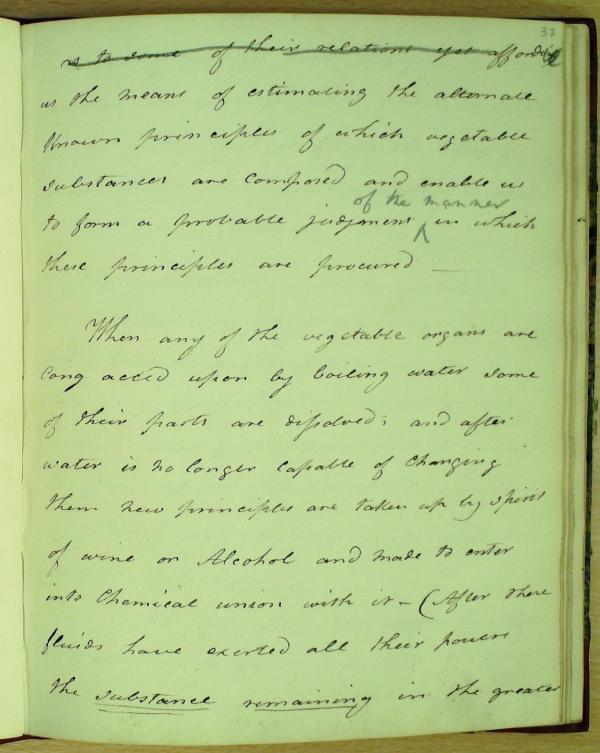 37
as to some of their relations yet affording
us the means of estimating the alternate
known principles of which vegetable
substances are composed and enable us
of the manner
to form a probable judgment ^ in which
these principles are procured —
When any of the vegetable organs are
long acted upon by boiling water some
of their parts are dissolved; and after
water is no longer capable of changing
them new principles are taken up by spirit
of wine or Alcohol and made to enter
into Chemical union with it – (After these
fluids have exerted all their powers
the substance remaining in the greater